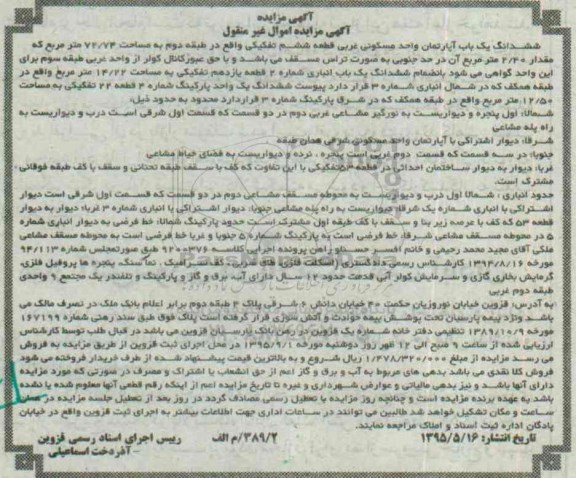 آگهی مزایده
آگهی مزایده اموال غیر منقول
ششدانگ یک باب آپارتمان واحد مسکونی غربی قطعه ششم تفکیکی واقع در طبقه دوم به مساحت ۷۲/۷۴ متر مربع که
مقدار ۲/۲۰ متر مربع آن در حد جنوبی به صورت تراس مسقف می باشد و با حق عبور کانال کولر از واحد غربی طبقه سوم برای
این واحد گواهی می شود بانضمام ششدانگ یک باب انباری شماره ۲ قطعه یازدهم تفکیکی به مساحت ۱۴/۲۲ متر مربع واقع در
طبقه همکف که در شمال انباری شماره ۳ قرار دارد پیوست ششدانگ یک واحد پارکینگ شماره ۴ قطعه ۲۲ تفکیکی به مساحت
۱۲/۵۰ متر مربع واقع در طبقه همکف که در شرق پارکینگ شماره ۳ قرار دارد محدود به حدود ذیل:
شمالا: اول پنجره و دیواریست به نورگیر مشاعی غربی دوم در دو قسمت که قسمت اول شرقی است درب و دیواریست به
راه پله مشاعی
شرقا: دیوار اشتراکی با آپارتمان واحد مسکونی شرقی همان طبقه
جنوبا: در سه قسمت که قسمت دوم غربی است پنجره، نرده و دیواریست به فضای حیاط مشاعی
غربا: دیوار به دیوار ساختمان احداثی در قطعه ۵۳ تفکیکی با این تفاوت که کف با سقف طبقه تحتانی و سقف با کف طبقه فوقانی
مشترک است.
حدود انباری: شمالا اول درب و دیواریست به محوطه مسقف مشاعی دوم در دو قسمت که قسمت اول شرقی است دیوار
اشتراکی با انباری شماره یک شرقا: دیواریست به راه پله مشاعی جنوبا: دیوار اشتراکی با انباری شماره ۳ غربا: دیوار به دیوار
قطعه ۵۳ که کف با عرصه زیر بنا و سقف با کف طبقه اول مشترک است حدود پارکینگ شمالا: خط فرضی به دیوار انباری شماره
۵ در محوطه مسقف مشاعی شرقا: خط فرضی است به پارکینگ شماره ۵ جنوبا و غربا خط فرضی است به محوطه مسقف مشاعی
ملکی آقای مجید محمد رحیمی و خانم افسر راهن پرونده اجرایی کلاسه ۹۲۰۰۳۷۶ طبق صورتمجلس شماره ۹۴/۱۱۳
مورخه ۱۳۹۴/۸/۱۶ کارشناس رسمی دادگستری
گرمایش بخاری گازی و سرمایش کولر آبی قدمت حدود ۱۲ سال دارای آب، برق و گاز و پارکینگ و تلفن در یک مجتمع ۹ واحدی
طبقه دوم غربی
به آدرس: قزوین خیابان نوروزیان حکمت ۴۰ خیابان دانش ۶ شرقی پلاک ۴ طبقه دوم برابر اعلام بانک ملک در تصرف مالک می
باشد و نزد بیمه پارسیان تحت پوشش بیمه حوادث و آتش سوزی قرار گرفته است پلاک فوق طبق سند رهنی شماره ۱۶۷۱۹۹
مورخه ۱۳۸۹/۱۰/۹ تنظیمی دفتر خانه شماره یک قزوین در رهن بانک پارسیان قزوین می باشد در قبال طلب توسط کارشناس
ارزیابی شده از ساعت ۹ صبح الی ۱۲ ظهر روز دوشنبه مورخه ۱۳۹۵/۹/۱ در محل اجرای ثبت قزوین از طریق مزایده به فروش
می رسد مزایده از مبلغ ۱/۴۷۸/۳۲۰/۰۰۰ ریال شروع و به بالاترین قیمت پیشنهاد شده از طرف خریدار فروخته می شود
فروش کلا نقدی می باشد بدهی های مربوط به آب و برق و گاز اعم از حق انشعاب یا اشتراک و مصرف در صورتی که مورد مزایده
دارای آنها باشد و نیز بدهی مالیاتی و عوارض شهرداری و غیره تا تاریخ مزایده اعم از اینکه رقم قطعی آنها معلوم شده یا نشده
باشد به عهده برنده مزایده است و چنانچه روز مزایده با تعطیل رسمی مصادف گردد در روز بعد از تعطیل جلسه مزایده در همان
ساعت و مکان تشکیل خواهد شد طالبین می توانند در ساعات اداری جهت اطلاعات بیشتر به اجرای ثبت قزوین واقع در خیابان
پادگان اداره ثبت اسناد و املاک مراجعه نمایند.
تاریخ انتشار: ۱۳۹۵/۵/۱۶
۳۸۹/۲/م الف
رییس اجرای اسناد رسمی قزوین
- آذردخت اسماعیلی